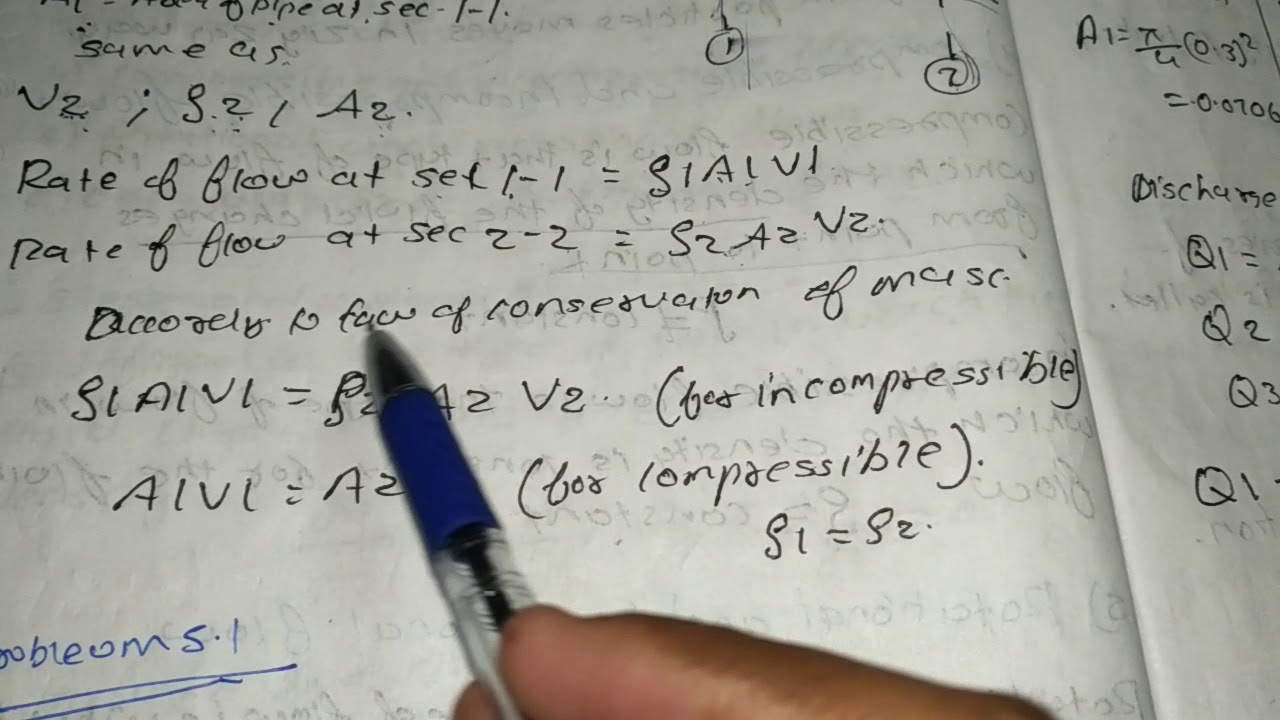 of pipe at sec-1-1.
same as
V2 ; ρ2 , A2.
Rate of flow at sec 1-1 = ρ1A1V1
Rate of flow at sec 2-2 = ρ2 A2 V2.
to law of conservation of mass.
ρ1A1V1 = ρ2 A2 V2. (for incompressible)
A1V1 = A2 (for compressible).
ρ1 = ρ2.
Probleom 5.1
1
2
A1 = π/4 (0.3)²
= 0.0706
Discharge
Q1 =
Q2
Q3
Q1